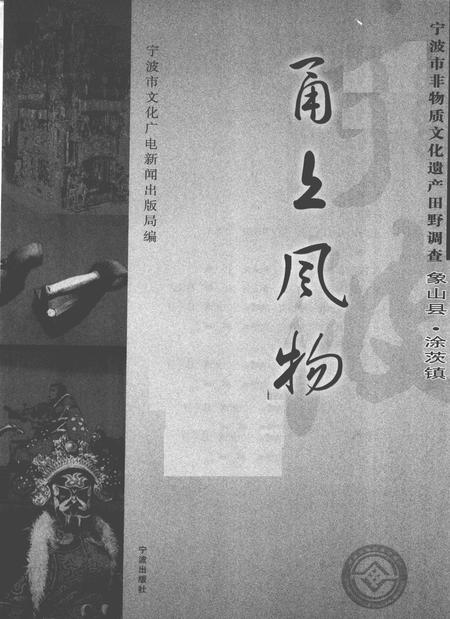 宁波市非物质文化遗产田野调查 象山县·涂茨镇
甬上风物
宁波市文化广电新闻出版局编
宁波出版社